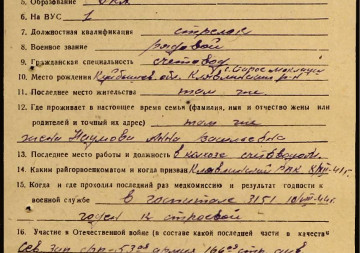 5. Образование
6. На ВУС 1
7. Должностная квалификация стрелок
8. Военное звание рядовой
9. Гражданская специальность счетовод
10. Место рождения Куйбышев обл. Клявлинский р-н
11. Последнее место жительства там же
12. Где проживает в настоящее время семья (фамилия, имя и отчество жены или
родителей и точный их адрес) там же
жена Наумова Анна Василевна
13. Последнее место работы и должность в колхозе счетоводом
14. Каким райгорвоенкоматом и когда призван Клявлинский РВК
15. Когда и где проходил последний раз медкомиссию и результат годности к
военной службе в госпитале 3151
годен к строевой
16. Участие в Отечественной войне (в составе какой последней части и в качестве
Сев. зап. фр-т 53 армия 166 стр. див